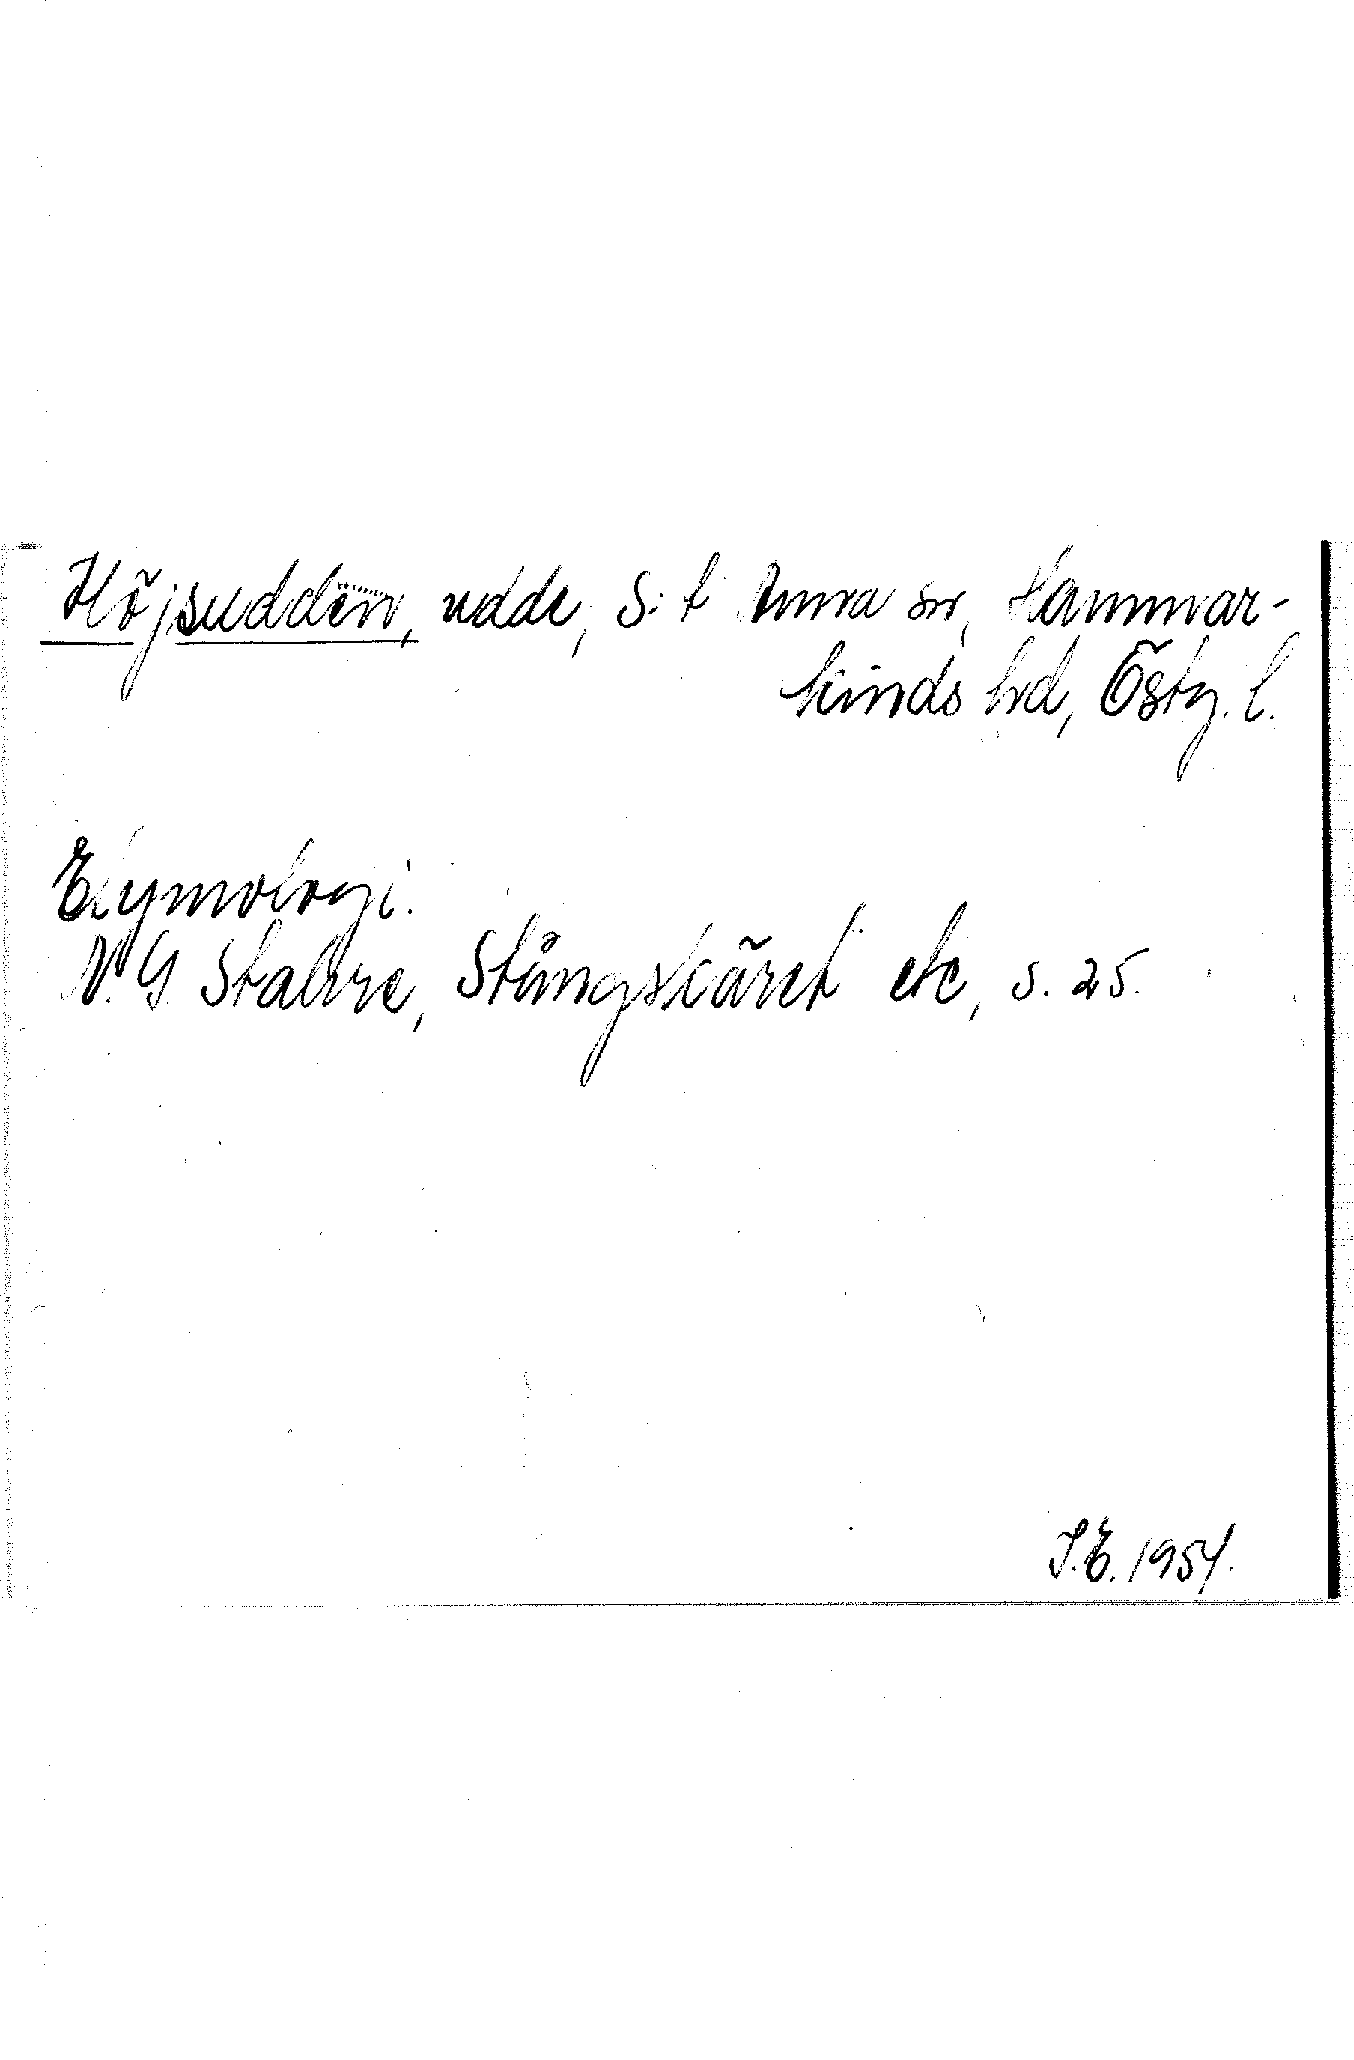 Höjsudden, udde, S:t Anna sn, Hammar-
kinds hd, Östg. l.
Etymologi.
N. G. Stahre, Stångskäret etc, s. 25.
S.E. 1954.